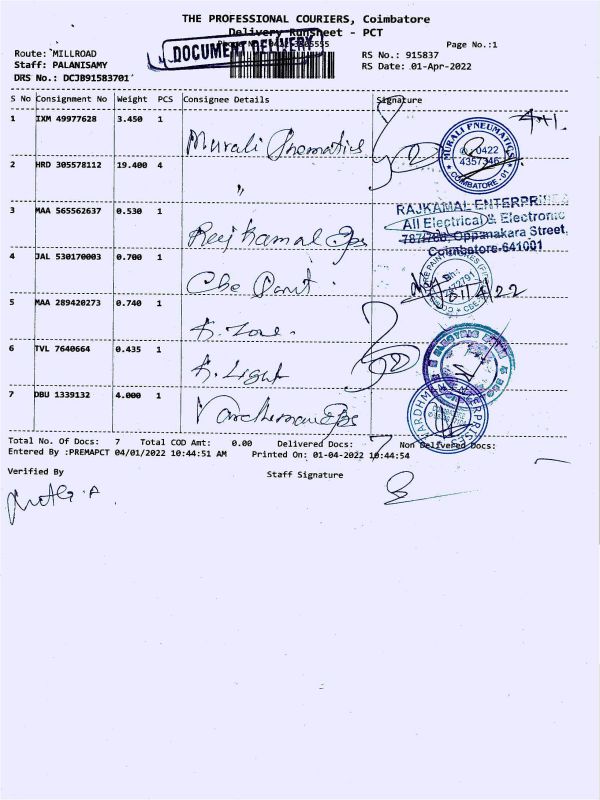 THE PROFESSIONAL COURIERS, Coimbatore
Delivery RunSheet - PCT
DOCUMENT DELIVERY
Page No.:1
Route: MILLROAD
RS No.: 915837
Staff: PALANISAMY
RS Date: 01-Apr-2022
DRS No.: DCJB91583701
S No Consignment No Weight PCS Consignee Details Signature
1 IXM 49977628 3.450 1 Murali Pnematics
MURALI PNEUMATICS
0422
4357346
COIMBATORE - 01
2 HRD 305578112 19.400 4 "
3 MAA 565562637 0.530 1 Raj Kamal
RAJKAMAL ENTERPRISES
All Electrical & Electronic
787/788, Oppanakara Street,
Coimbatore-641001
4 JAL 530170003 0.700 1 Cbe Paint
5 MAA 289420273 0.740 1 A. Zone
6 TVL 7640664 0.435 1 A. Light
7 DBU 1339132 4.000 1
Total No. Of Docs: 7 Total COD Amt: 0.00 Delivered Docs: Non Delivered Docs:
Entered By :PREMAPCT 04/01/2022 10:44:51 AM Printed On: 01-04-2022 10:44:54
Verified By Staff Signature